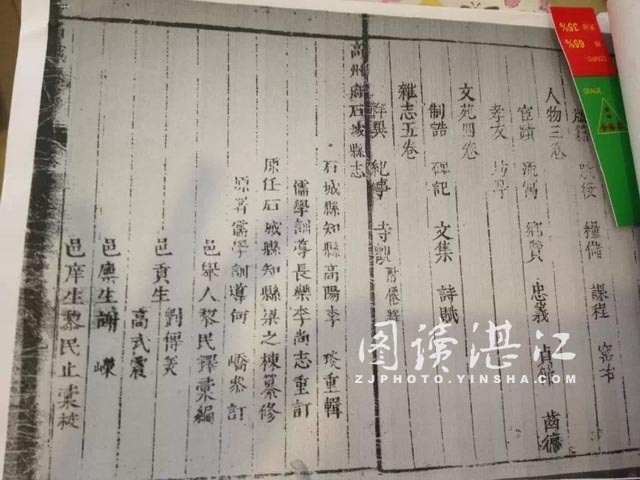 人物三卷
宦蹟 流寓 鄉賢 忠義 貞節 齒德
孝友
文苑四卷
制誥 碑記 文集 詩賦
雜志五卷
祥異 紀事 寺觀
高州府石城縣志
石城縣知縣高陽李 琰重輯
儒學訓導長樂李尚志重訂
原任石城縣知縣梁之棟纂修
原署儒學訓導何 嶠叅訂
邑舉人黎民鐸彙編
邑貢生 劉傳芰
高式震
邑廩生謝 嶸
邑庠生黎民止彙校
图读湛江
ZJPHOTO.YINSHA.COM
35%
65%
COMPO
GRADE